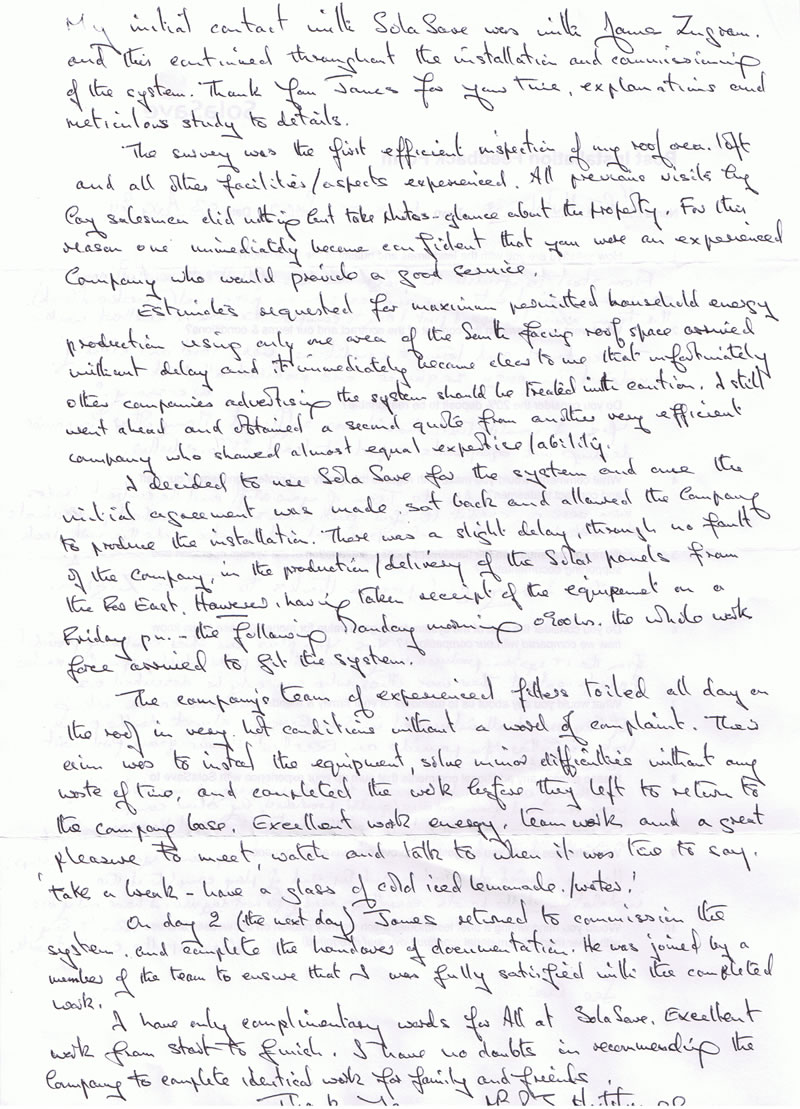 My initial contact with SolaSave was with James Ingram.
and this continued throughout the installation and commissioning
of the system. Thank you James for your time, explanations and
meticulous study to details.
The survey was the first efficient inspection of my roof area. loft
and all other facilities/aspects experienced. All previous visits by
salesmen did nothing but take photos - glance about the property. For this
reason one immediately became confident that you were an experienced
Company who would provide a good service.
Estimates requested for maximum permitted household energy
production using only one area of the South facing roof space arrived
without delay and it immediately became clear to me that unfortunately
other companies advertising the system should be treated with caution. I still
went ahead and obtained a second quote from another very efficient
company who shared almost equal expertise/ability.
I decided to use SolaSave for the system and once the
initial agreement was made, sat back and allowed the Company
to produce the installation. There was a slight delay, through no fault
of the Company, in the production/delivery of the Solar panels from
the Far East. However, having taken receipt of the equipment on a
Friday pm. - the following Monday morning 0900hr. the whole work
force arrived to fit the system.
The company's team of experienced fitters toiled all day on
the roof in very hot conditions without a word of complaint. Their
aim was to instal the equipment, solve minor difficulties without any
waste of time, and completed the work before they left to return to
the company base. Excellent work energy, team work and a great
pleasure to meet, watch and talk to when it was time to say,
'take a break - have a glass of cold iced lemonade/water.'
On day 2 (the next day) James returned to commission the
system, and complete the handover of documentation. He was joined by a
member of the team to ensure that I was fully satisfied with the completed
work.
I have only complimentary words for All at SolaSave. Excellent
work from start to finish. I have no doubts in recommending the
Company to complete identical work for family and friends.
Thank You